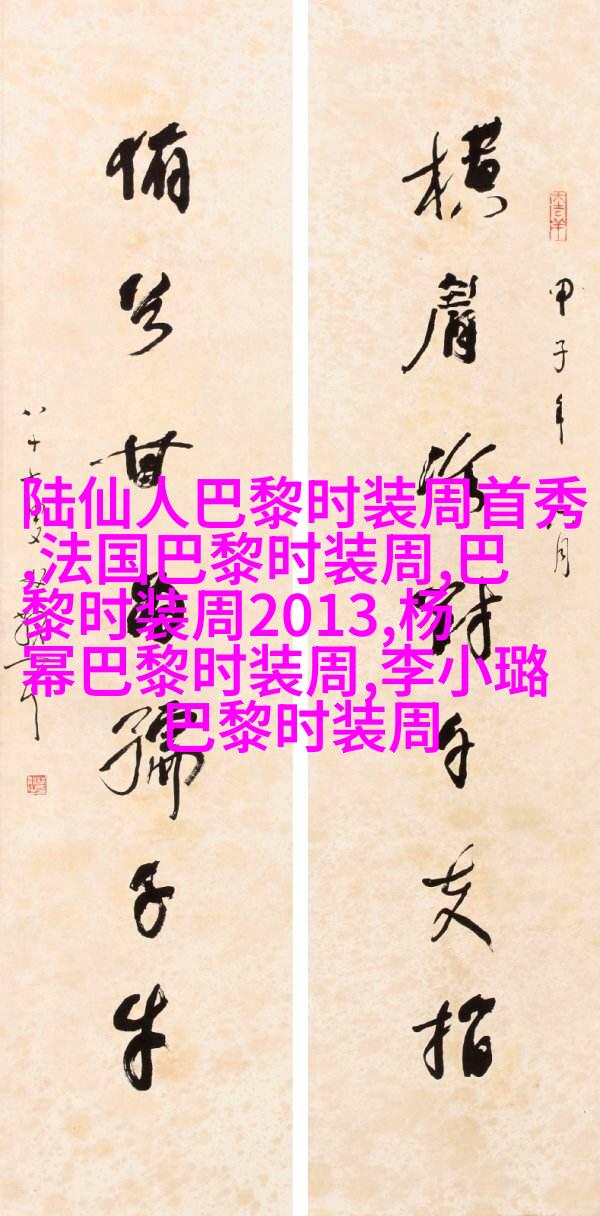 甲子年
横眉冷对千夫指
俯首甘为孺子牛
陆仙人巴黎时装周首秀
,法国巴黎时装周,巴
黎时装周2013,杨
幂巴黎时装周,李小璐
巴黎时装周